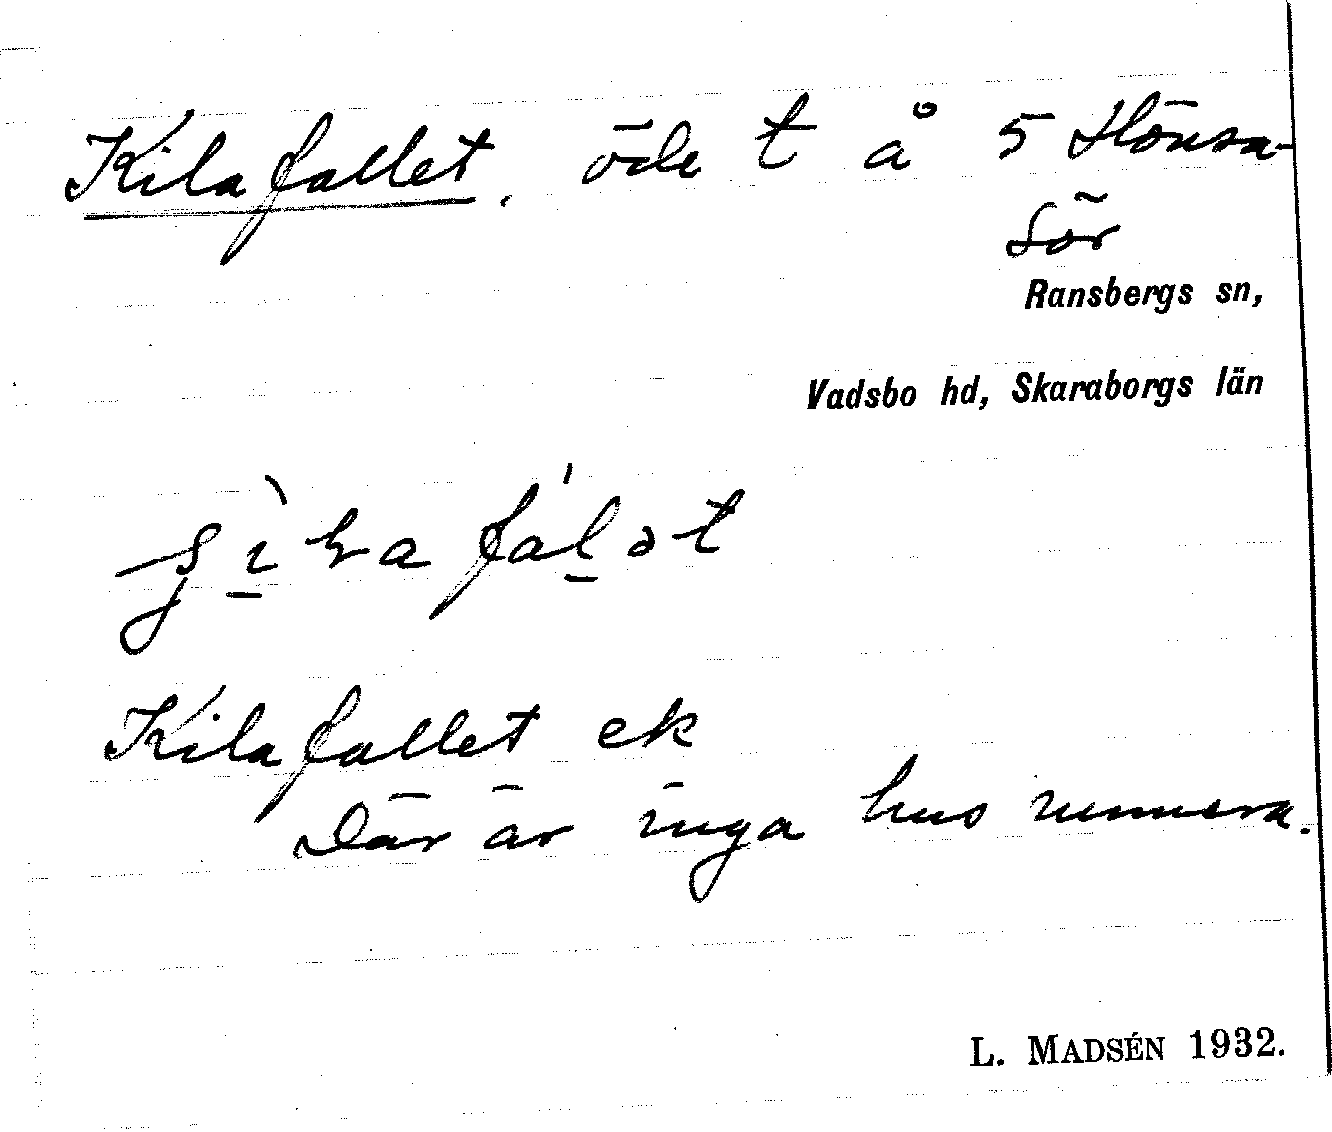 Kilafallet, öde t å 5 Hönsa-
sör
Ransbergs sn,
Vadsbo hd, Skaraborgs län
Kilafallet ek
Där är inga hus numera.
L. MADSÉN 1932.